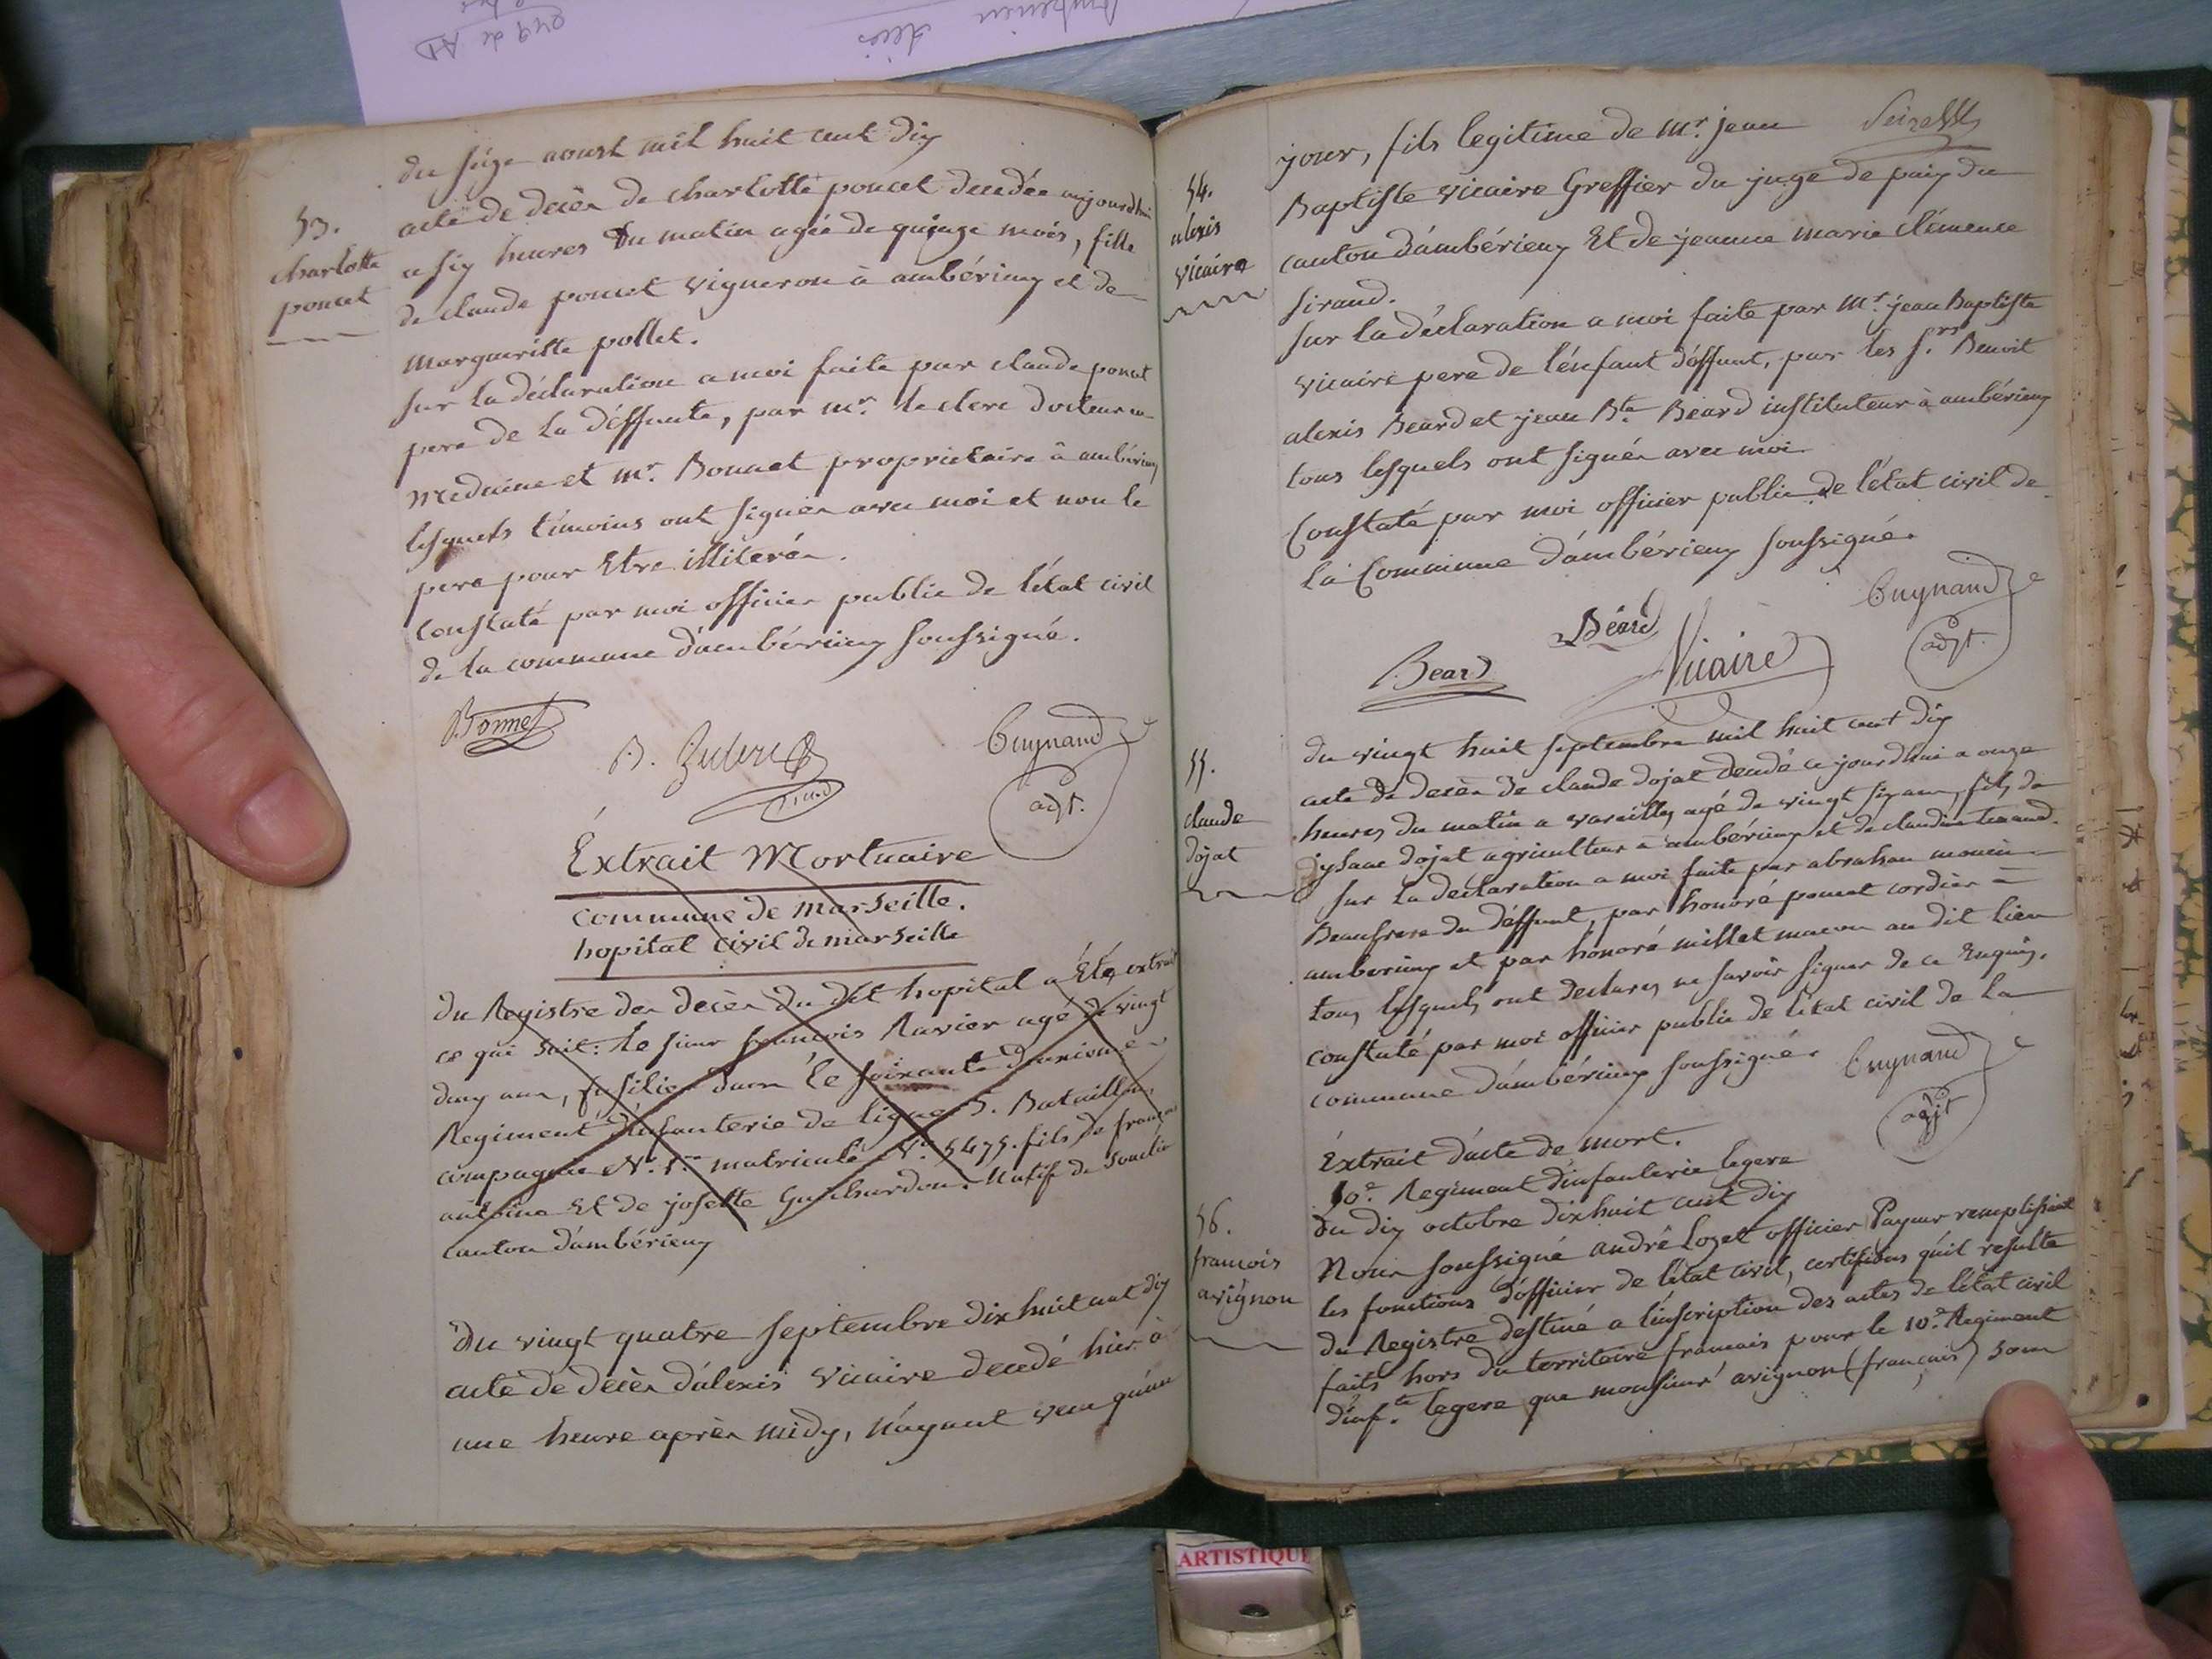 53.
charlotte
poncet
du seize aoust mil huit cent dix
acte de decès de charlotte poncet decedée aujourdhui
a six heures du matin agée de quinze mois, fille
de claude poncet vigneron à ambérieux et de
margueritte pollet.
sur la déclaration a moi faite par claude poncet
pere de la déffunte, par mr. leclerc docteur en
medecine et mr. Bonnet proprietaire à ambérieux
lesquels témoins ont signés avec moi et non le
pere pour Etre illiterés.
constaté par moi officier public de l'état civil
de la commune d'ambérieux soussigné.
Bonnet
Guynand
adjt.
Extrait Mortuaire
commune de marseille.
hopital civil de marseille
du Registre des decès du dit hopital a Eté extrait
ce qui suit: le sieur francois Ravier agé de vingt
deux ans, fusilier dans le soixante d'unieme
Regiment d'infanterie de ligne 5. Bataillon,
compagnie matricule No. 5475. fils de francois
antoine Et de josette Guichardon. Natif de
canton d'ambérieux
Du vingt quatre septembre dix huit cent dix
acte de decès d'alexis vicaire decedé hier à
une heure après midy, n'ayant vecu qu'un
54.
alexis
vicaire
jour, fils legitime de mr. jean
Baptiste vicaire Greffier du juge de paix du
canton d'ambérieux Et de jeanne marie clémence
sirand.
sur la déclaration a moi faite par mr. jean Baptiste
vicaire pere de l'énfant déffunt, par les s.rs Benoit
alexis Beard et jean Bte. Beard instituteur à ambérieux
tous lesquels ont signés avec moi.
Constaté par moi officier public de l'état civil de
la Commune d'ambérieux soussigné.
Béard
Beard
Vicaire
Guynand
adjt.
55.
claude
dojat
du vingt huit septembre mil huit cent dix
acte de decès de claude dojat decedé ce jourd'hui a onze
heures du matin a vareilles agé de vingt six ans, fils de
dojat agriculteur à ambérieux et de claudine
sur la declaration a moi faite par abraham
Beaufrere du déffunt, par honoré poncet cordier à
amberieux et par honoré millet macon au dit lieu
tous lesquels ont declarés ne savoir signer de ce Enquis.
constaté par moi officier public de l'état civil de la
commune d'ambérieux soussigné.
Guynand
adjt
56.
francois
avignon
Extrait d'acte de mort.
10e. Regiment d'infanterie legere
du dix octobre dixhuit cent dix
Nous soussigné andré Lozet officier Payeur remplissant
les fonctions d'officier de l'état civil, certifions qu'il resulte
du Registre destiné a l'inscription des actes de l'état civil
faits hors du territoire francais pour le 10e. Regiment
d'inf.te legere que monsieur avignon (francois) sous
ARTISTIQUE